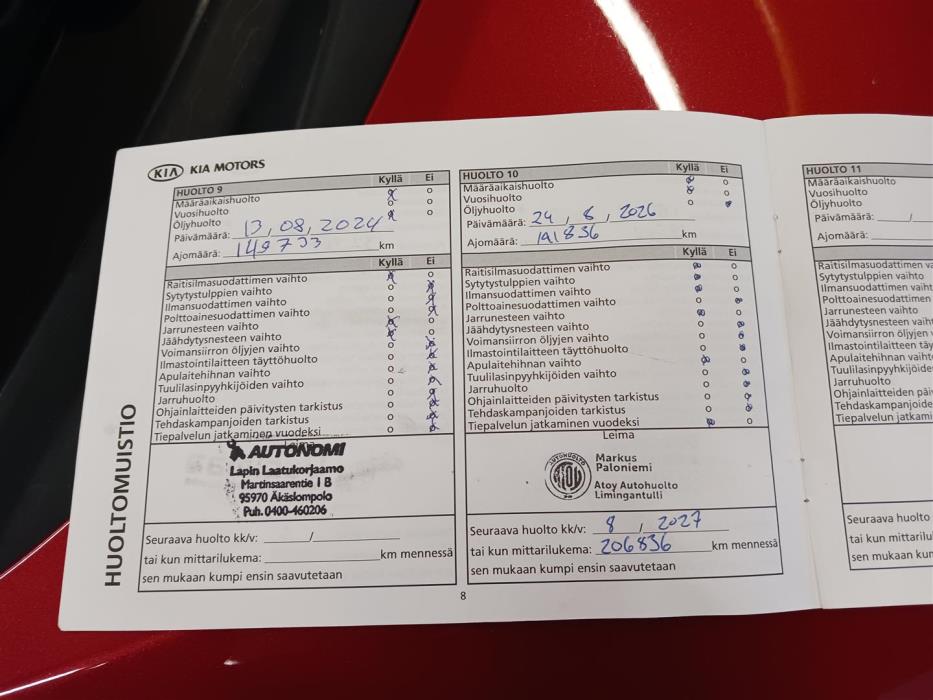 KIA KIA MOTORS
HUOLTOMUISTIO
HUOLTO 9 Kyllä Ei
Määräaikaishuolto
Vuosihuolto
Öljyhuolto
Päivämäärä: 13, 08, 2024
Ajomäärä: 149733 km
Kyllä Ei
Raitisilmasuodattimen vaihto
Sytytystulppien vaihto
Ilmansuodattimen vaihto
Polttoainesuodattimen vaihto
Jarrunesteen vaihto
Jäähdytysnesteen vaihto
Voimansiirron öljyjen vaihto
Ilmastointilaitteen täyttöhuolto
Apulaitehihnan vaihto
Tuulilasinpyyhkijöiden vaihto
Jarruhuolto
Ohjainlaitteiden päivitysten tarkistus
Tehdaskampanjoiden tarkistus
Tiepalvelun jatkaminen vuodeksi
Leima
AUTONOMI
Lapin Laatukorjaamo
Martinsaarentie 1 B
95970 Äkäslompolo
Puh. 0400-460206
Seuraava huolto kk/v: /
tai kun mittarilukema: km mennessä
sen mukaan kumpi ensin saavutetaan
HUOLTO 10 Kyllä Ei
Määräaikaishuolto
Vuosihuolto
Öljyhuolto
Päivämäärä: 24, 8, 2026
Ajomäärä: 191836 km
Kyllä Ei
Raitisilmasuodattimen vaihto
Sytytystulppien vaihto
Ilmansuodattimen vaihto
Polttoainesuodattimen vaihto
Jarrunesteen vaihto
Jäähdytysnesteen vaihto
Voimansiirron öljyjen vaihto
Ilmastointilaitteen täyttöhuolto
Apulaitehihnan vaihto
Tuulilasinpyyhkijöiden vaihto
Jarruhuolto
Ohjainlaitteiden päivitysten tarkistus
Tehdaskampanjoiden tarkistus
Tiepalvelun jatkaminen vuodeksi
Leima
Markus
Paloniemi
Atoy Autohuolto
Limingantulli
Seuraava huolto kk/v: 8 / 2027
tai kun mittarilukema: 206836 km mennessä
sen mukaan kumpi ensin saavutetaan
8
HUOLTO 11
Määräaikaishuolto
Vuosihuolto
Öljyhuolto
Päivämäärä: /
Ajomäärä:
Raitisilmasuodattimen va
Sytytystulppien vaihto
Ilmansuodattimen vaiht
Polttoainesuodattimen
Jarrunesteen vaihto
Jäähdytysnesteen vaih
Voimansiirron öljyjen
Ilmastointilaitteen täy
Apulaitehihnan vaiht
Tuulilasinpyyhkijöide
Jarruhuolto
Ohjainlaitteiden päi
Tehdaskampanjoide
Tiepalvelun jatkami
Seuraava huolto
tai kun mittarilu
sen mukaan kum